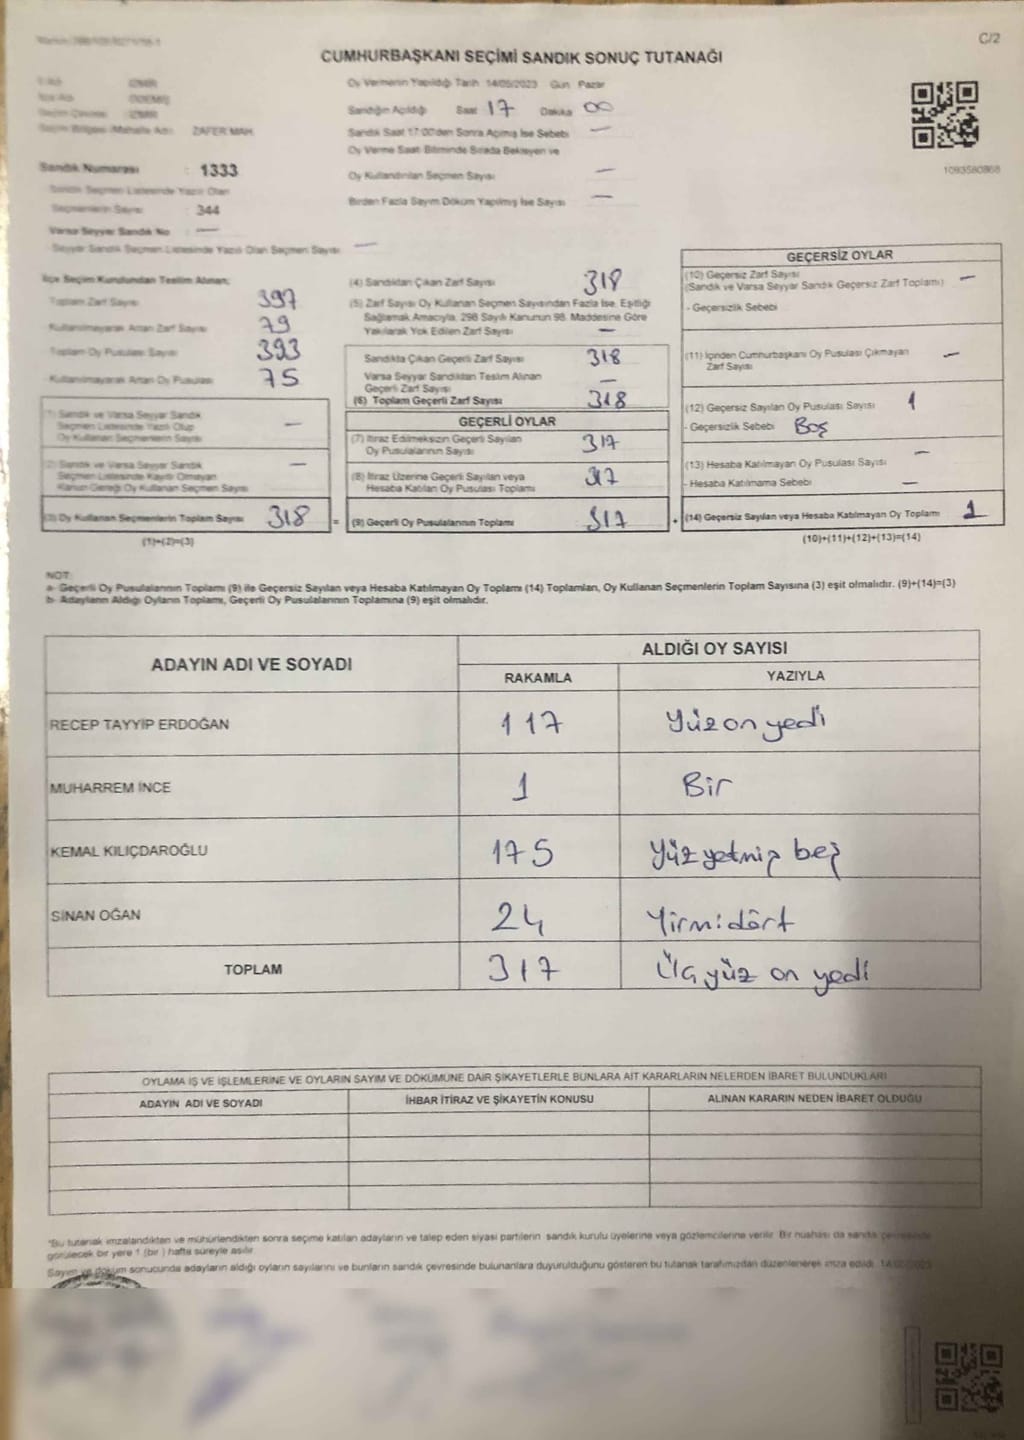 C/2
CUMHURBAŞKANI SEÇİMİ SANDIK SONUÇ TUTANAĞI
Oy Vermenin Yapıldığı Tarih 14/05/2023 Gün Pazar
İZMİR
ÖDEMİŞ
İZMİR
Sandığın Açıldığı Saat 17 Dakika 00
Seçim Bölgesi (Mahalle Adı) ZAFER MAH.
Sandık Saat 17:00'den Sonra Açılmış İse Sebebi —
Oy Verme Saati Bitiminde Sırada Bekleyen ve
Oy Kullandırılan Seçmen Sayısı —
Birden Fazla Sayım Döküm Yapılmış İse Sayısı —
1093580868
Sandık Numarası : 1333
Sandık Seçmen Listesinde Yazılı Olan
Seçmenlerin Sayısı : 344
Varsa Seyyar Sandık No : —
Seyyar Sandık Seçmen Listesinde Yazılı Olan Seçmen Sayısı : —
İlçe Seçim Kurulundan Teslim Alınan;
Toplam Zarf Sayısı 397
-Kullanılmayarak Artan Zarf Sayısı 79
Toplam Oy Pusulası Sayısı 393
-Kullanılmayarak Artan Oy Pusulası 75
(1) Sandık ve Varsa Seyyar Sandık
Seçmen Listesinde Yazılı Olup
Oy Kullanan Seçmenlerin Sayısı —
(2) Sandık ve Varsa Seyyar Sandık
Seçmen Listesinde Kayıtlı Olmayan
Kanun Gereği Oy Kullanan Seçmen Sayısı —
(3) Oy Kullanan Seçmenlerin Toplam Sayısı 318 =
(1)+(2)=(3)
(4) Sandıktan Çıkan Zarf Sayısı 318
(5) Zarf Sayısı Oy Kullanan Seçmen Sayısından Fazla İse, Eşitliği
Sağlamak Amacıyla, 298 Sayılı Kanunun 98. Maddesine Göre
Yakılarak Yok Edilen Zarf Sayısı —
Sandıkta Çıkan Geçerli Zarf Sayısı 318
Varsa Seyyar Sandıktan Teslim Alınan
Geçerli Zarf Sayısı —
(6) Toplam Geçerli Zarf Sayısı 318
GEÇERLİ OYLAR
(7) İtiraz Edilmeksizin Geçerli Sayılan
Oy Pusulalarının Sayısı 317
(8) İtiraz Üzerine Geçerli Sayılan veya
Hesaba Katılan Oy Pusulası Toplamı 317
(9) Geçerli Oy Pusulalarının Toplamı 317 +
GEÇERSİZ OYLAR
(10) Geçersiz Zarf Sayısı
(Sandık ve Varsa Seyyar Sandık Geçersiz Zarf Toplamı) —
- Geçersizlik Sebebi
(11) İçinden Cumhurbaşkanı Oy Pusulası Çıkmayan
Zarf Sayısı —
(12) Geçersiz Sayılan Oy Pusulası Sayısı 1
- Geçersizlik Sebebi Boş
(13) Hesaba Katılmayan Oy Pusulası Sayısı —
- Hesaba Katılmama Sebebi —
(14) Geçersiz Sayılan veya Hesaba Katılmayan Oy Toplamı 1
(10)+(11)+(12)+(13)=(14)
NOT:
a- Geçerli Oy Pusulalarının Toplamı (9) ile Geçersiz Sayılan veya Hesaba Katılmayan Oy Toplamı (14) Toplamları, Oy Kullanan Seçmenlerin Toplam Sayısına (3) eşit olmalıdır. (9)+(14)=(3)
b- Adayların Aldığı Oyların Toplamı, Geçerli Oy Pusulalarının Toplamına (9) eşit olmalıdır.
ADAYIN ADI VE SOYADI
ALDIĞI OY SAYISI
RAKAMLA YAZIYLA
RECEP TAYYİP ERDOĞAN 117 Yüz on yedi
MUHARREM İNCE 1 Bir
KEMAL KILIÇDAROĞLU 175 Yüz yetmiş beş
SİNAN OĞAN 24 Yirmidört
TOPLAM 317 Üçyüz on yedi
OYLAMA İŞ VE İŞLEMLERİNE VE OYLARIN SAYIM VE DÖKÜMÜNE DAİR ŞİKAYETLERLE BUNLARA AİT KARARLARIN NELERDEN İBARET BULUNDUKLARI
ADAYIN ADI VE SOYADI İHBAR İTİRAZ VE ŞİKAYETİN KONUSU ALINAN KARARIN NEDEN İBARET OLDUĞU
*Bu tutanak imzalandıktan ve mühürlendikten sonra seçime katılan adayların ve talep eden siyasi partilerin sandık kurulu üyelerine veya gözlemcilerine verilir. Bir nüshası da sandık çevresinde
görülecek bir yere 1 (bir) hafta süreyle asılır.
Sayım ve döküm sonucunda adayların aldığı oyların sayılarını ve bunların sandık çevresinde bulunanlara duyurulduğunu gösteren bu tutanak tarafımızdan düzenlenerek imza edildi. 14/05/2023